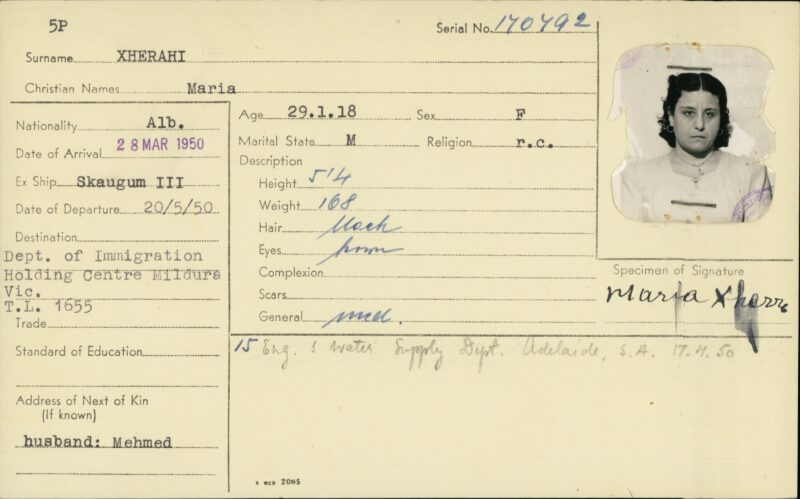 5P
Serial No. 170792
Surname XHERAHI
Christian Names Maria
Nationality Alb.
Date of Arrival 28 MAR 1950
Ex Ship Skaugum III
Date of Departure 20/5/50
Destination
Dept. of Immigration
Holding Centre Mildura
Vic.
T.L. 1655
Trade
Standard of Education
Address of Next of Kin
(If known)
husband: Mehmed
Age 29.1.18 Sex F
Marital State M Religion r.c.
Description
Height 5'4
Weight 168
Hair black
Eyes brown
Complexion
Scars
General med.
Specimen of Signature
Maria
15 Eng. & Water Supply Dept. Adelaide, S.A. 17.4.50
2085